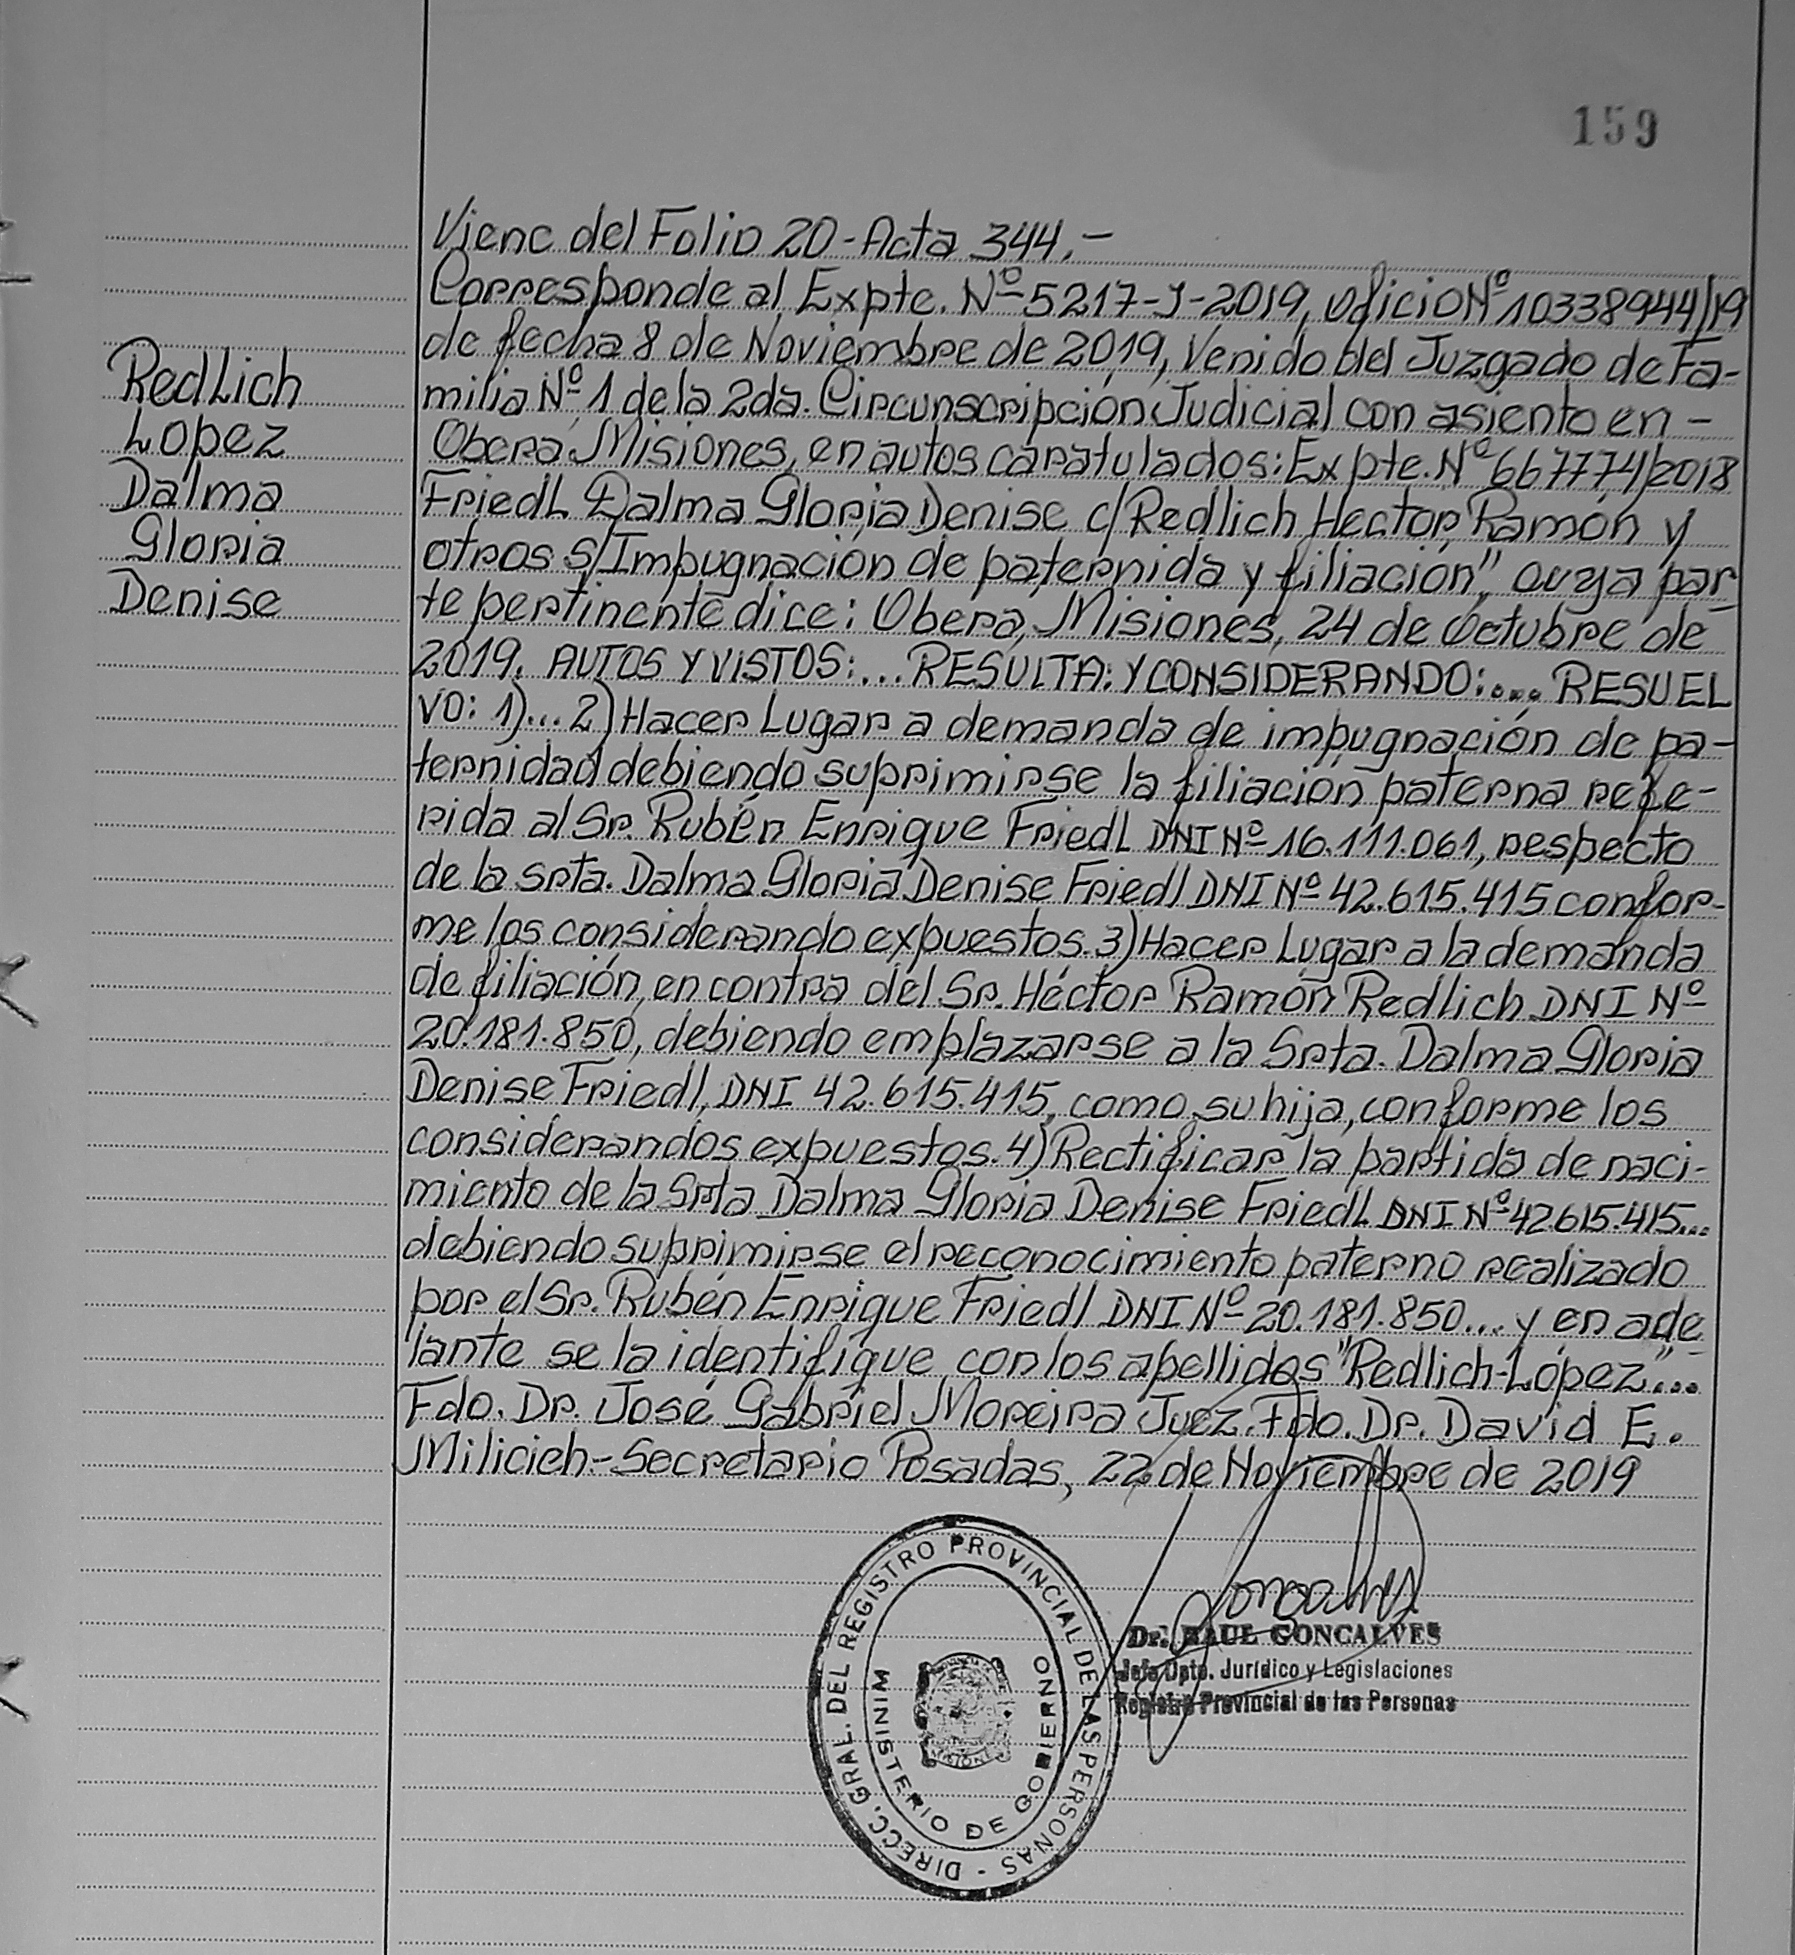 159
Viene del Folio 20-Acta 344.-
Corresponde al Expte. Nº 5217-J-2019, oficio Nº 10338944/19
de fecha 8 de Noviembre de 2019, Venido del Juzgado de Fa-
milia Nº 1 de la 2da. Circunscripción Judicial con asiento en -
Obera, Misiones, en autos caratulados: Expte. Nº 667774/2018
FriedL Dalma Gloria Denise c/ Redlich Hector Ramón y
otros S/Impugnación de paternida y filiación", cuya par
te pertinente dice: Obera, Misiones, 24 de Octubre de
2019. AUTOS Y VISTOS:... RESULTA: Y CONSIDERANDO:.... RESUEL
VO: 1)... 2) Hacer Lugar a demanda de impugnación de pa-
ternidad debiendo suprimirse la filiación paterna refe-
rida al Sr. Rubén Enrique FriedL DNI Nº 16.111.061, respecto
de la srta. Dalma Gloria Denise Friedl DNI Nº 42.615.415 confor-
me los considerando expuestos. 3) Hacer Lugar a la demanda
de filiación, en contra del Sr. Héctor Ramón Redlich DNI Nº
20.181.850, debiendo emplazarse a la Srta. Dalma Gloria
Denise Friedl, DNI 42.615.415, como su hija, conforme los
considerandos expuestos. 4) Rectificar la partida de naci-
miento de la Srta Dalma Gloria Denise FriedL DNI Nº 42615.415...
debiendo suprimirse el reconocimiento paterno realizado
por el Sr. Rubén Enrique Friedl DNI Nº 20.181.850... y en ade
lante se la identifique con los apellidos "Redlich-López"...
Fdo. Dr. José Gabriel Moreira Juez. Fdo. Dr. David E.
Milicich-Secretario Posadas, 22 de Noviembre de 2019
RedLich
Lopez
Dalma
Gloria
Denise
DIRECC. GRAL. DEL REGISTRO PROVINCIAL DE LAS PERSONAS -
MINISTERIO DE GOBIERNO
Dr. RAUL GONCALVES
Jefe Dpto. Jurídico y Legislaciones
Registro Provincial de las Personas